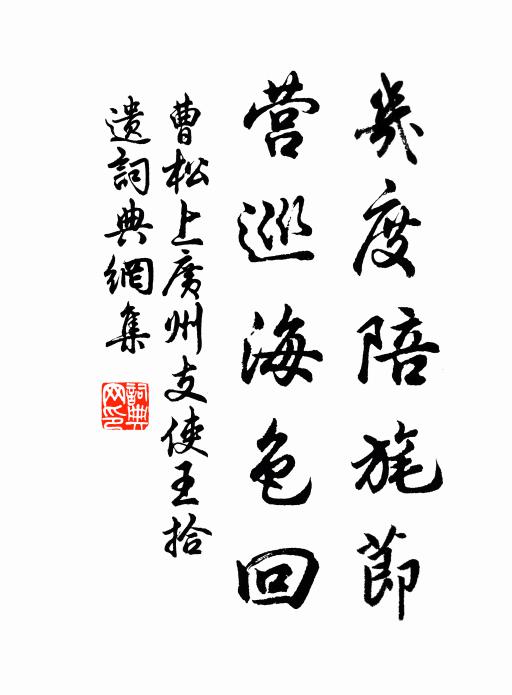 幾度陪旄節
营巡海色回
曹松上廣州支使王拾
遺詞典網集
詞典網印